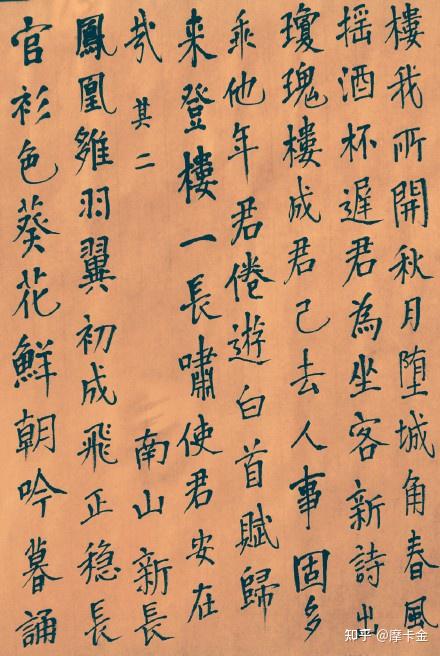 樓我所開秋月墮城角春風
摇酒杯遲君為坐客新詩出
瓊瑰樓成君已去人事固多
乖他年君倦遊白首賦歸
来登樓一長嘯使君安在
哉 其二 南山新長
鳳凰雛羽翼初成飛正穏長
官衫色葵花鮮朝吟暮誦
知乎 @摩卡金